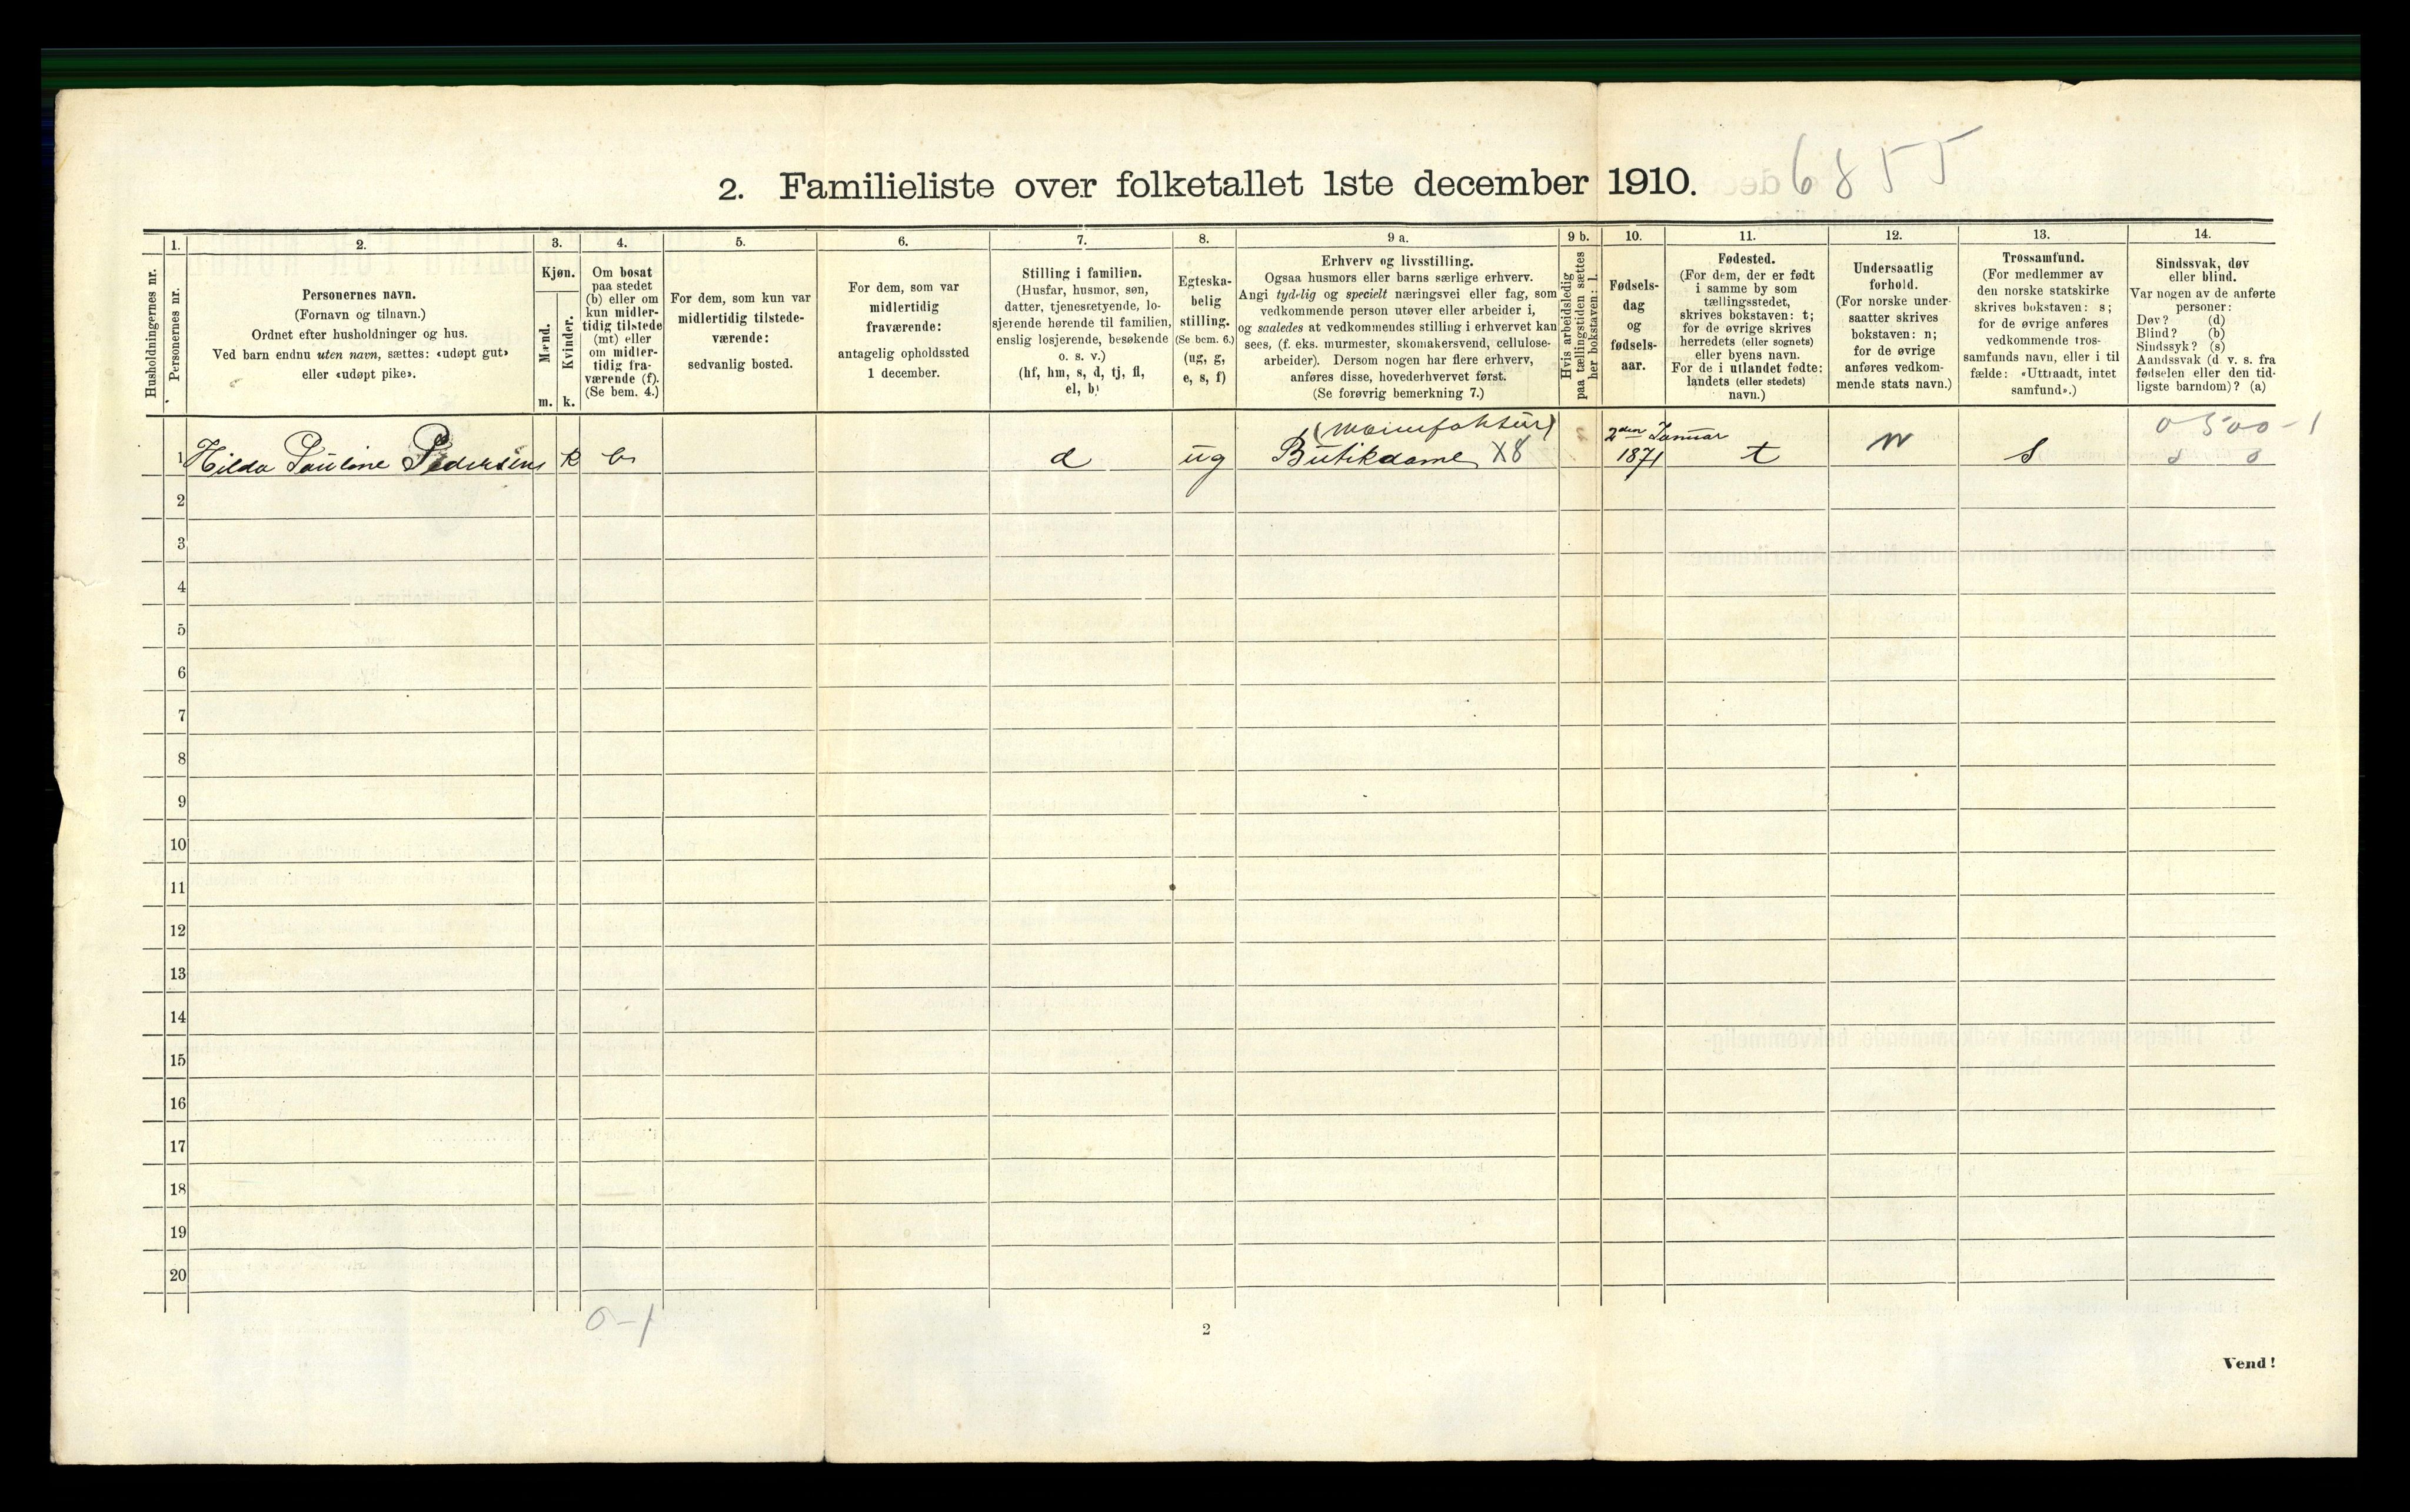 2. Familieliste over folketallet 1ste december 1910.
6855
1.
2.
3.
4.
5.
6.
7.
8.
9 a.
9 b.
10.
11.
12.
13.
14.
Husholdningernes nr.
Personernes nr.
Personernes navn.
(Fornavn og tilnavn.)
Ordnet efter husholdninger og hus.
Ved barn endnu uten navn, sættes: «udøpt gut»
eller «udøpt pike».
Kjøn.
Mænd.
Kvinder.
m.
k.
Om bosat
paa stedet
(b) eller om
kun midler-
tidig tilstede
(mt) eller
om midler-
tidig fra-
værende (f).
(Se bem. 4.)
For dem, som kun var
midlertidig tilstede-
værende:
sedvanlig bosted.
For dem, som var
midlertidig
fraværende:
antagelig opholdssted
1 december.
Stilling i familien.
(Husfar, husmor, søn,
datter, tjenestetyende, lo-
sjerende hørende til familien,
enslig losjerende, besøkende
o. s. v.)
(hf, hm, s, d, tj, fl,
el, b)
Egteska-
belig
stilling.
(Se bem. 6.)
(ug, g,
e, s, f)
Erhverv og livsstilling.
Ogsaa husmors eller barns særlige erhverv.
Angi tydelig og specielt næringsvei eller fag, som
vedkommende person utøver eller arbeider i,
og saaledes at vedkommendes stilling i erhvervet kan
sees, (f. eks. murmester, skomakersvend, cellulose-
arbeider). Dersom nogen har flere erhverv,
anføres disse, hovederhvervet først.
(Se forøvrig bemerkning 7.)
Hvis arbeidsledig
paa tællingstiden sættes
her bokstaven: l.
Fødsels-
dag
og
fødsels-
aar.
Fødested.
(For dem, der er født
i samme by som
tællingsstedet,
skrives bokstaven: t;
for de øvrige skrives
herredets (eller sognets)
eller byens navn.
For de i utlandet fødte:
landets (eller stedets)
navn.)
Undersaatlig
forhold.
(For norske under-
saatter skrives
bokstaven: n;
for de øvrige
anføres vedkom-
mende stats navn.)
Trossamfund.
(For medlemmer av
den norske statskirke
skrives bokstaven: s;
for de øvrige anføres
vedkommende tros-
samfunds navn, eller i til
fælde: «Uttraadt, intet
samfund».)
Sindssvak, døv
eller blind.
Var nogen av de anførte
personer:
Døv? (d)
Blind? (b)
Sindssyk? (s)
Aandssvak (d. v. s. fra
fødselen eller den tid-
ligste barndom)? (a)
(Manufaktur)
2den Januar
0500-1
1 Hilda Pauline Pedersen k b d ug Butikdame X8 1871 t n s
2
3
4
5
6
7
8
9
10
11
12
13
14
15
16
17
18
19
20
0-1
2
Vend!